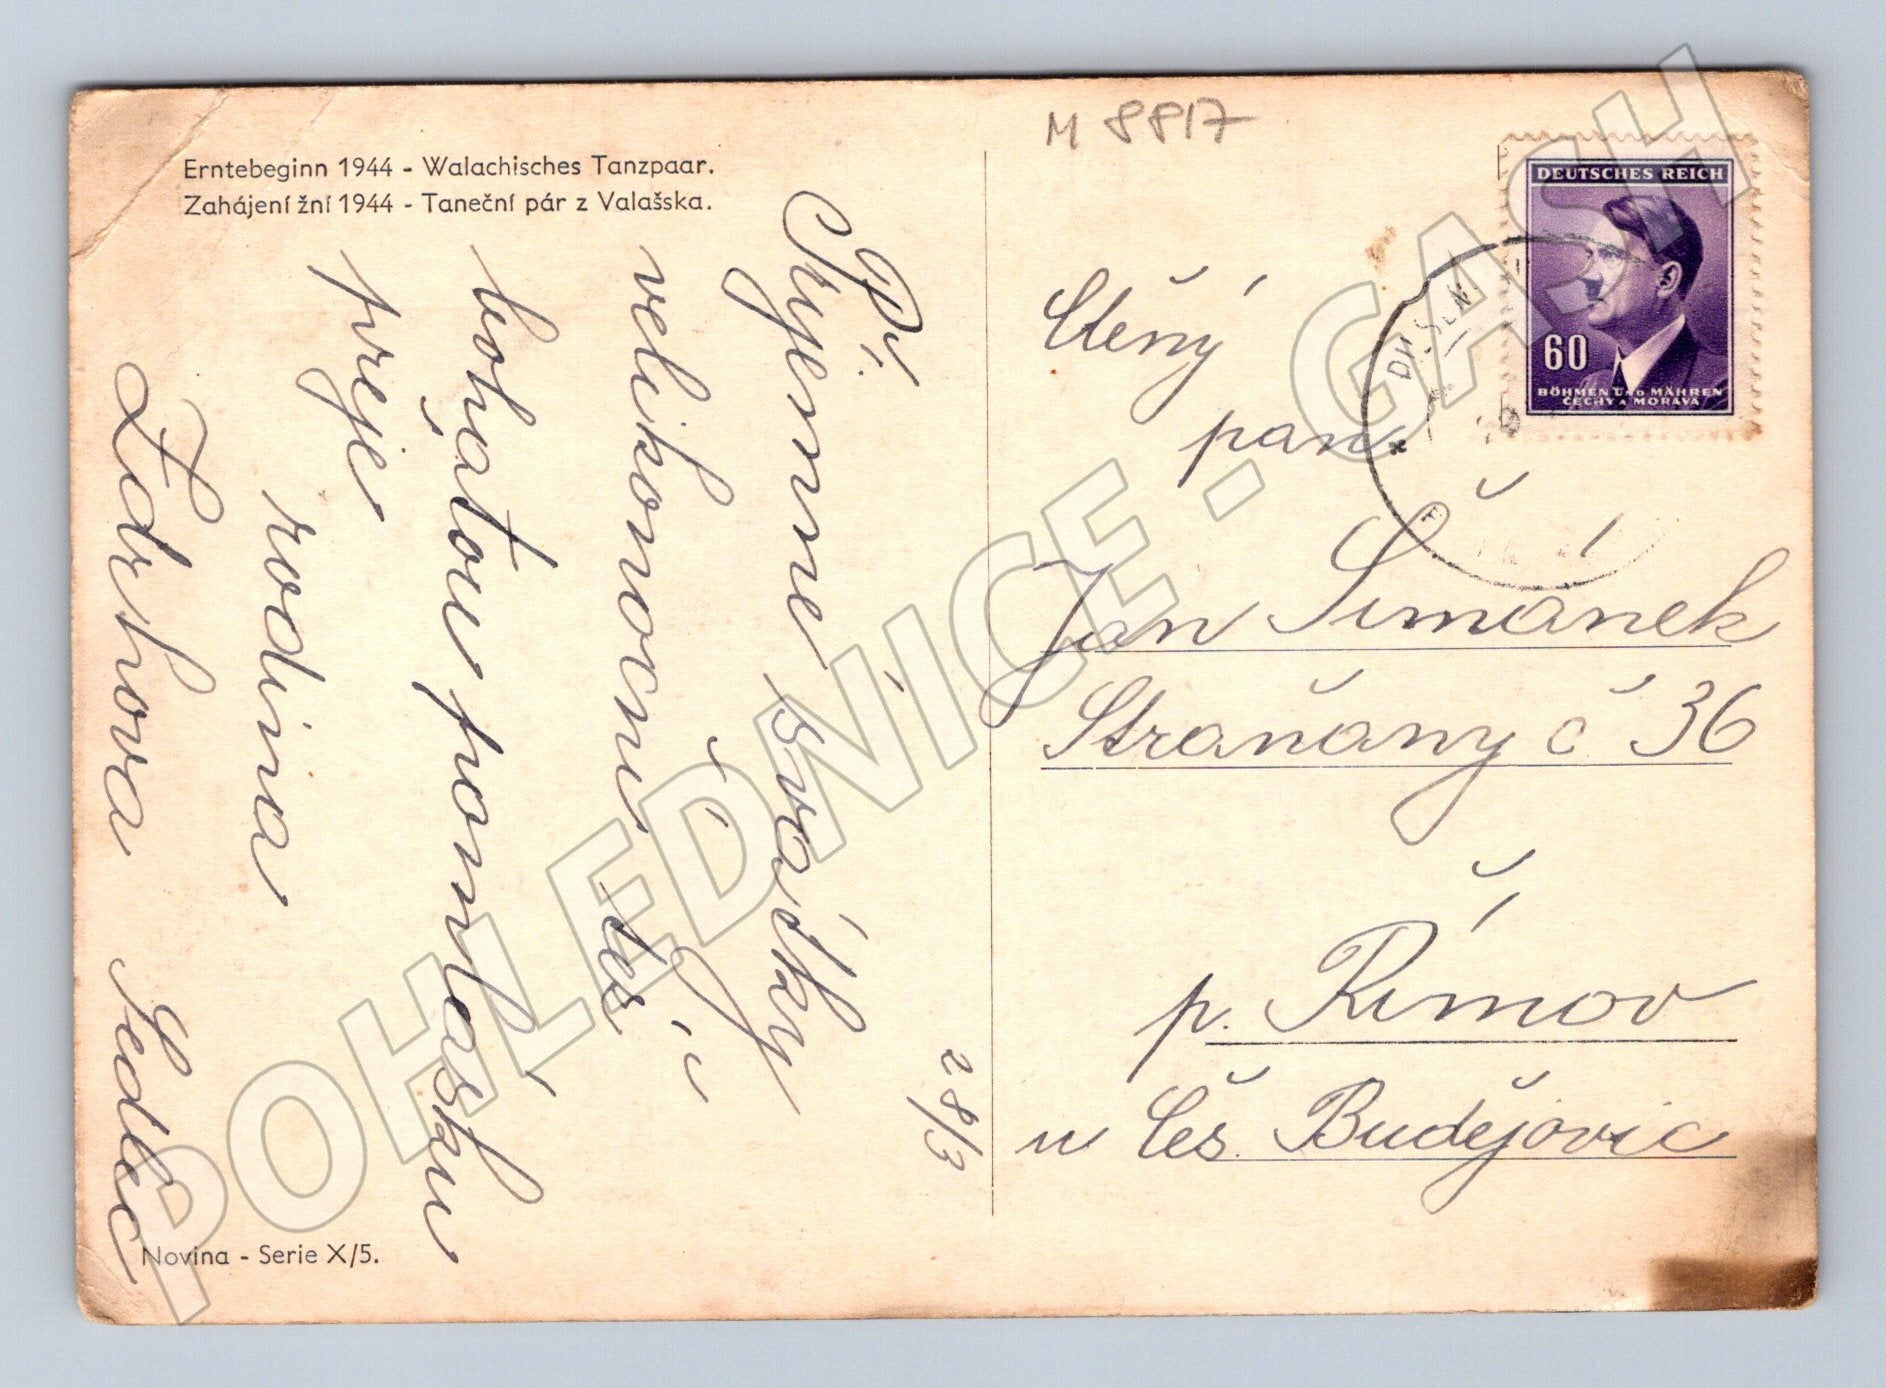 Erntebeginn 1944 - Walachisches Tanzpaar.
Zahájení žní 1944 - Taneční pár z Valašska.
M 8817
DEUTSCHES REICH
60
BÖHMEN UND MÄHREN
ČECHY A MORAVA
Př.
Příjemné svátky
velikonoční též
bohatou pomlasku
přeje
rodina
Sedlec
28/3
Ctěný
pan
Jan Šimánek
Straňany č 36
p. Římov
u Čes. Budějovic
Novina - Serie X/5.
POHLEDNICE - GASH